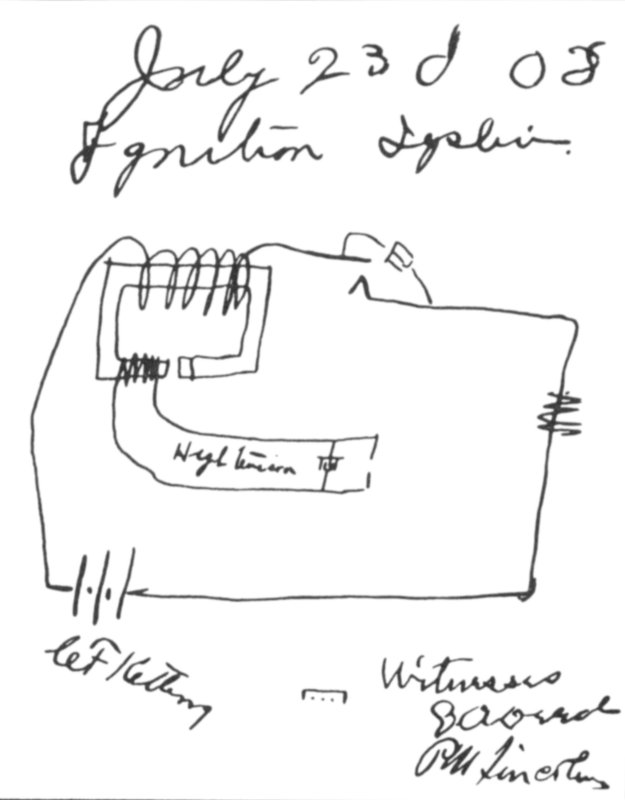 July 23d 08
Ignition System.
High tension
C F Kettering
Witnesses
E A Deeds